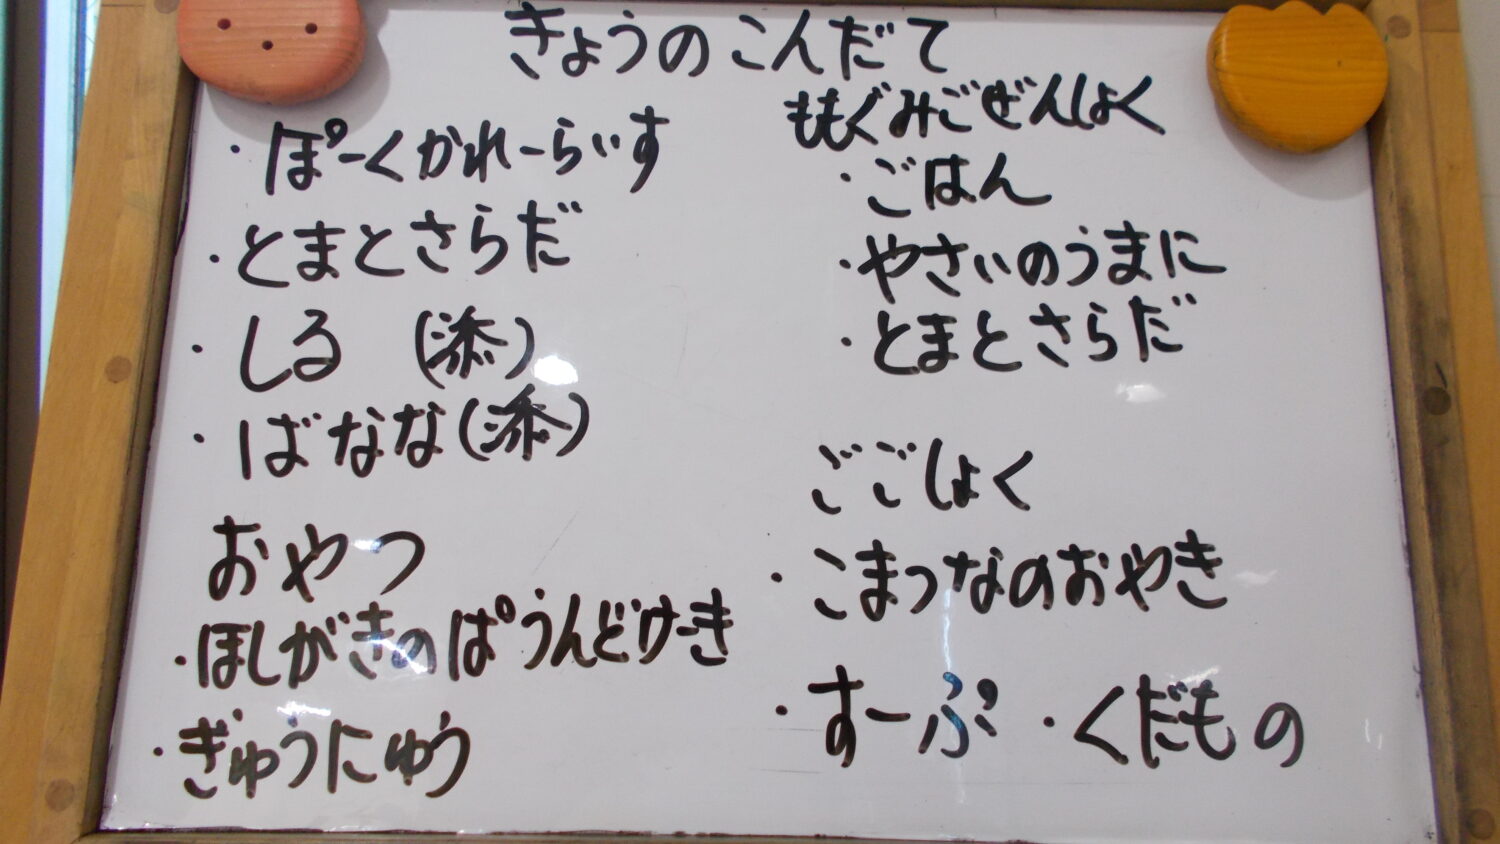 きょうのこんだて
・ぽーくかれーらいす
・とまとさらだ
・しる (添)
・ばなな(添)
おやつ
・ほしがきのぱうんどけーき
・ぎゅうにゅう
ももぐみごぜんしょく
・ごはん
・やさいのうまに
・とまとさらだ
ごごしょく
・こまつなのおやき
・すーぷ ・くだもの